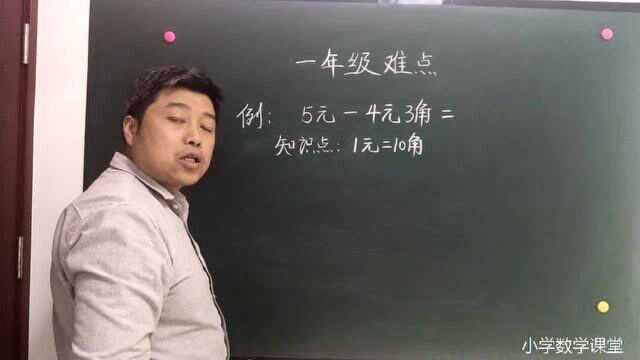 一年级难点
例: 5元-4元3角=
知识点: 1元=10角
小学数学课堂